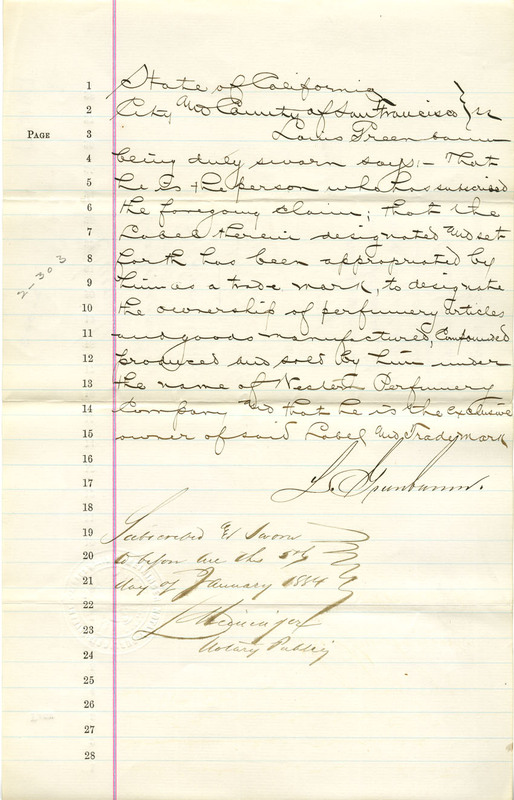 1 State of California
2 City and County of San Francisco } ss
PAGE 3 Louis Greenbaum
4 being duly sworn says:- That
5 he is the person who has subscribed
6 the foregoing claim; that the
7 Label therein designated and set
8 forth has been appropriated by
2-303
9 him as a trade mark, to designate
10 the ownership of perfumery articles
11 and goods manufactured, Compounded
12 produced and sold by him under
13 the name of Perfumery
14 Company and that he is the exclusive
15 owner of said Label and Trademark
16
17 L. Greenbaum.
18
19 Subscribed & Sworn
20 to before me this 3rd
21 day of January 1884
22
23
24 Notary Public
25
26
27
28